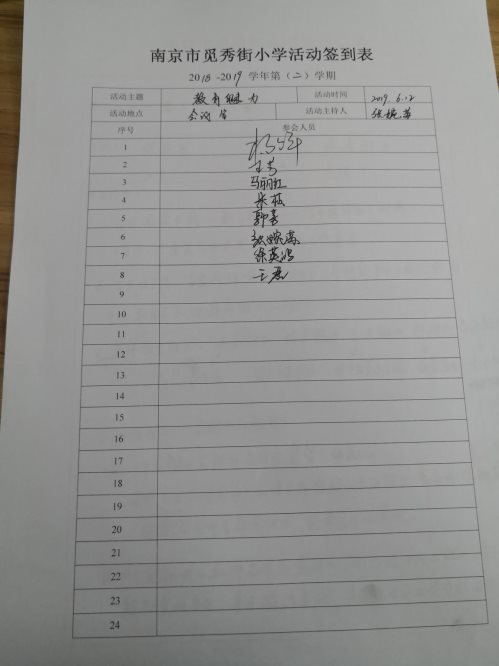 南京市觅秀街小学活动签到表
2018-2019 学年第（二）学期
活动主题 教育魅力 活动时间 2019.6.12
活动地点 会议室 活动主持人 张婉蓉
序号 参会人员
1
2 王芳
3 马丽红
4 朱枝
5 郭青
6 张婉蓉
7 徐英
8 王磊
9
10
11
12
13
14
15
16
17
18
19
20
21
22
23
24